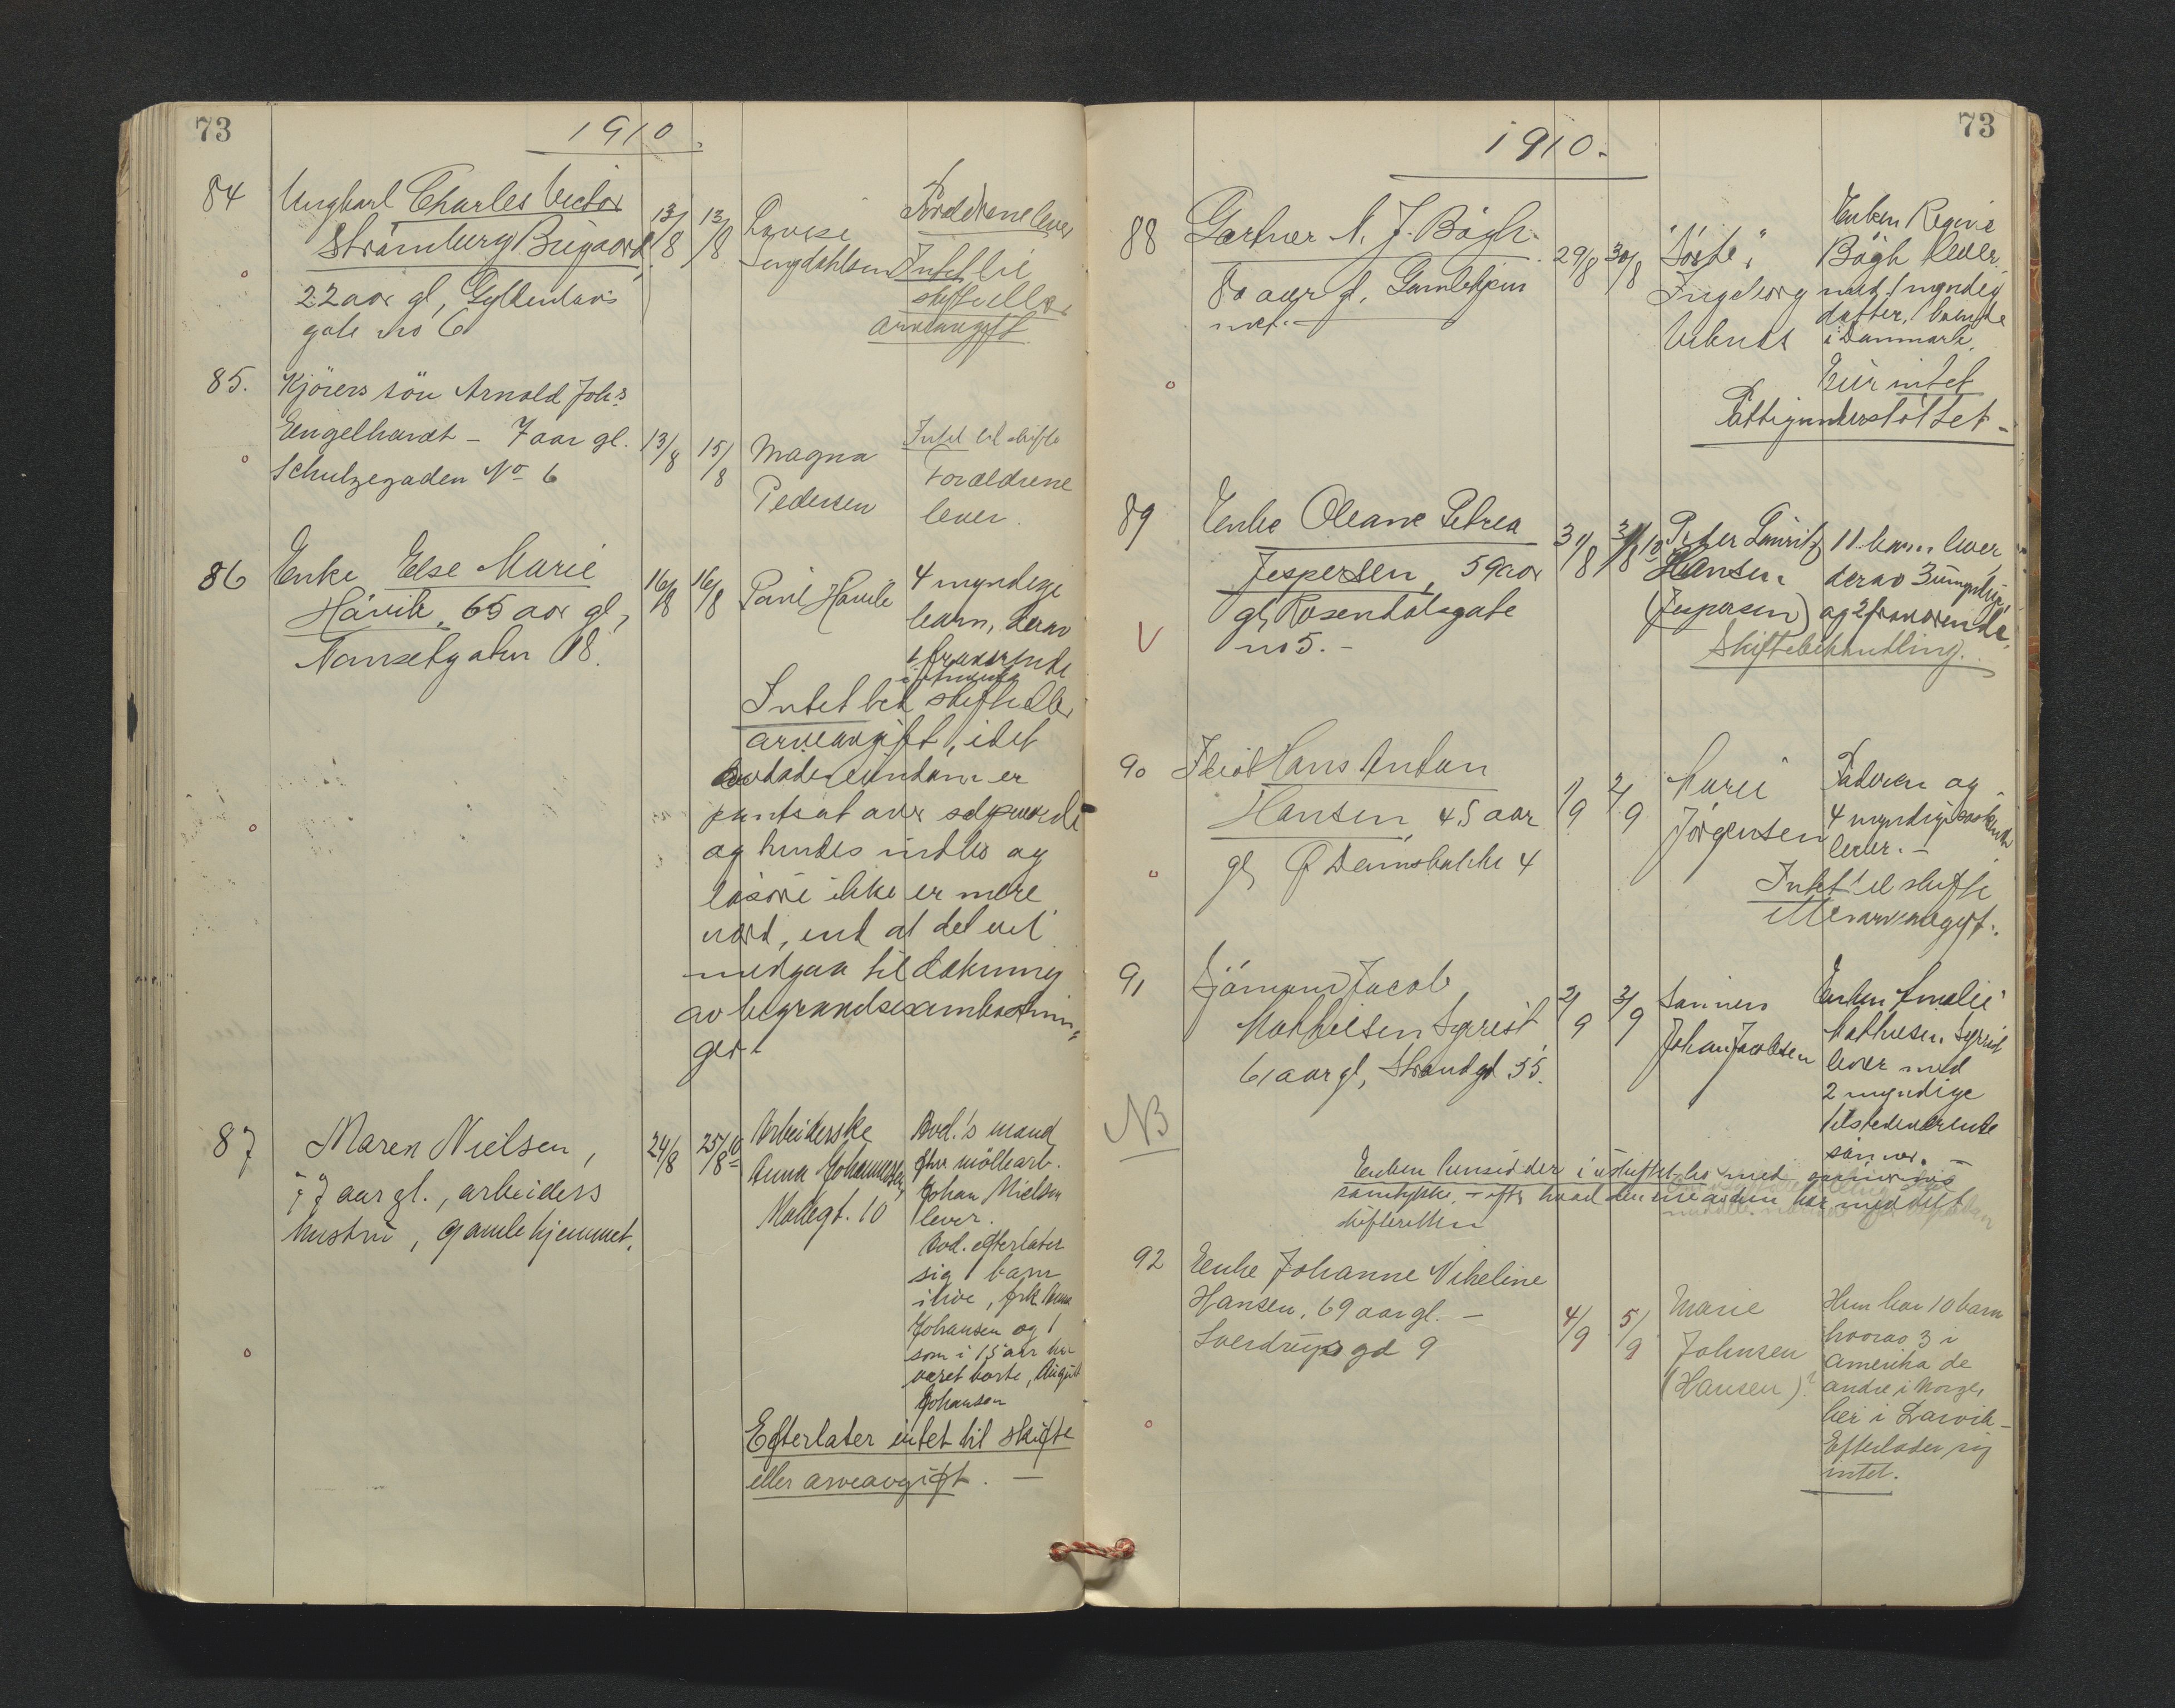 73
1910.
84
Ungkarl Charles Victor
Strömberg Bugaard,
22 aar gl, Gyldenløvs
gate no 6
13/8
13/8
Lovise
Lengdahlsen
Forældrene lever
Intet til
skifte eller
arveavgift
85.
Kjörers sön Arnold Johs
Engelhardt - 7 aar gl.
Schulzegaden No 6
13/8
15/8
Magna
Pedersen
Intet til skifte
Forældrene
lever.
86
Enke Else Marie
Håvik, 65 aar gl,
Nansetgaten 18.
16/8
16/8
Paul Håvik
4 myndige
barn, derav
1 fraværende
i Amerika
Intet til skifte eller
arveavgift, idet
avdödes eiendom er
pantsat over
og hendes indbo og
lösöre ikke er mere
værd, end at det vil
medgaa til dækning
av begravelsesomkostnin=
ger.-
87
Maren Nielsen,
77 aar gl., arbeiders
hustru, Gamlehjemmet.
24/8
25/8 10
Arbeiderske
Anna Johannessen,
Möllegt. 10
Avd.'s mand
fhv möllearb.
Johan Nielsen
lever.
Avd. efterlater
sig 1 barn
ilive, frk Anna
Johansen og 1
som i 15 aar har
været borte, August
Johansen
Efterlater intet til skifte
eller arveavgift. —
73
1910.
88
Gartner N. J. Bögh.
80 aar gl, Gamlehjem
met.-
29/8
30/8
"Söster"
Ingeborg
Enken Regine
Bögh lever
med 1 myndig
datter, boende
i Danmark.
Eiër intet
Fattigunderstöttet -
89
Enke Oleane Petrea
Jespersen, 59 aar
gl, Rosendalsgate
no 5. -
V
31/8
31/8 10
Peter Lauritz
Hansen
(Jespersen)
11 barn lever,
derav 3 umyndige,
og 2 fraværende.
Skiftebehandling.
90
Idiot Hans Anton
Hansen, 45 aar
gl, Damsbakke 4
1/9
2/9
Marie
Jörgensen
Faderen og
4 myndige söskende
lever. -
Intet til skifte
eller arveavgift.
91
Sjömand Jacob
Mathisen Syrrist,
61 aar gl, Strandgd 55.
NB
2/9
3/9
Sönnen
Johan Jacobsen
Enken Amalie
Mathisen Syrrist
lever med
2 myndige
tilstedeværende
sönner. -
Enken hensidder i uskiftet bo med sönnernes
samtykke, - efter hvad den ene av dem har meddelt
skifteretten
92
Enke Johanne Vikeline
Hansen, 69 aar gl. -
Sverdrups gd 9
4/9
5/9
Marie
Johnsen
(Hansen)?
Hun har 10 barn
hvorav 3 i
Amerika de
andre i Norge,
her i Larvik -
Efterlader sig
intet.